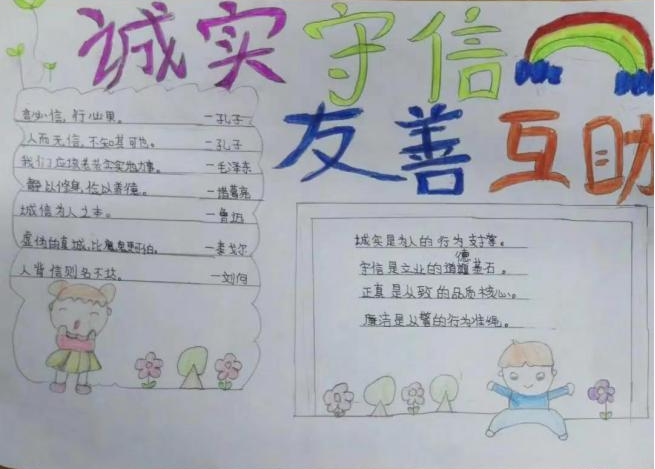 诚实守信
友善互助
言必信，行必果。 —孔子
人而无信，不知其可也。 —孔子
我们应该老老实实地办事。 —毛泽东
静以修身，俭以养德。 —诸葛亮
诚信为人之本。 —鲁迅
虚伪的真诚，比魔鬼更可怕。 —泰戈尔
人背信则名不达。 —刘向
诚实是为人的行为支撑。
守信是立业的道德基石。
正真是从政的品质核心。
廉洁是从警的行为准绳。